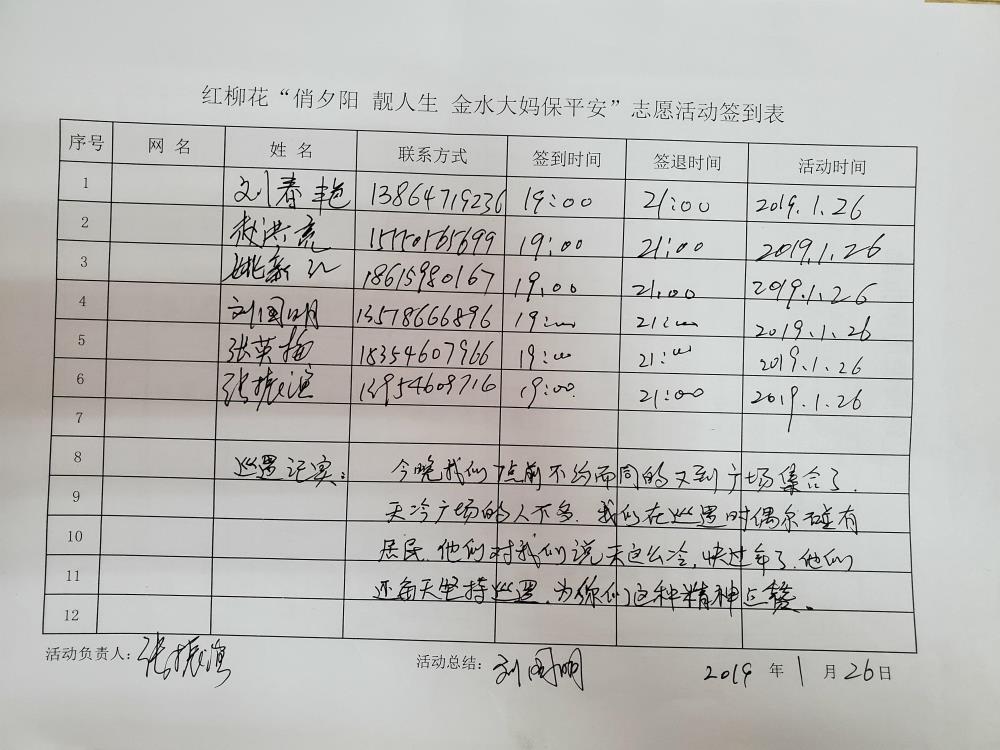 红柳花“俏夕阳 靓人生 金水大妈保平安”志愿活动签到表
序号 网 名 姓 名 联系方式 签到时间 签退时间 活动时间
1 刘春艳 13864719236 19:00 21:00 2019.1.26
2 赵洪亮 19:00 21:00 2019.1.26
3 姚新红 18615980167 19:00 21:00 2019.1.26
4 刘国明 13578666896 19:00 21:00 2019.1.26
5 张英梅 18354607966 19:00 21:00 2019.1.26
6 张振滨 13954609716 19:00 21:00 2019.1.26
7
8 巡逻记实: 今晚我们7点前不约而同的又到广场集合了.
9 天冷广场的人不多.我们在巡逻时偶尔碰有
10 居民.他们对我们说天这么冷,快过年了.他们
11 还每天坚持巡逻.为你们这种精神点赞.
12
活动负责人:张振滨 活动总结:刘国明 2019 年 1 月 26 日